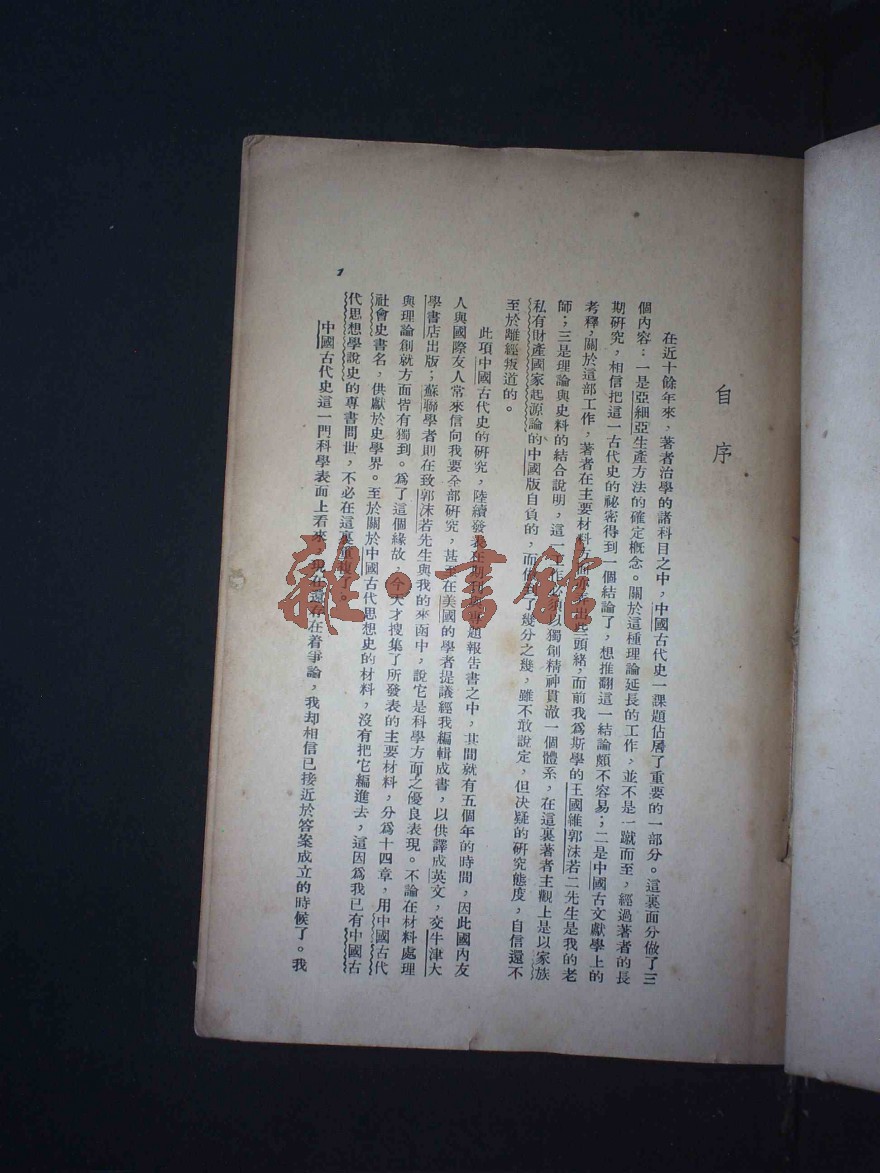 自序
在近十餘年來，著者治學的諸科目之中，中國古代史一課題佔居了重要的一部分。這裏面分做了三
個內容：一是亞細亞生產方法的確定概念。關於這種理論延長的工作，並不是一蹴而至，經過著者的長
期研究，相信把這一古代史的祕密得到一個結論了，想推翻這一結論頗不容易；二是中國古文獻學上的
考釋，關於這部工作，著者在主要材料方面亦弄出些頭緒，而前我爲斯學的王國維郭沫若二先生是我的老
師；三是理論與史料的結合說明，這一工作必須以獨創精神貫澈一個體系，在這裏著者主觀上是以家族
私有財產國家起源論的中國版自負的，而做到了幾分之幾，雖不敢說定，但決疑的研究態度，自信還不
至於離經叛道的。
此項中國古代史的研究，陸續發表在期刊與專題報告書之中，其間就有五個年的時間，因此國內友
人與國際友人常來信向我要全部研究，甚至在美國的學者提議經我編輯成書，以供譯成英文，交牛津大
學書店出版；蘇聯學者則在致郭沫若先生與我的來函中，說它是科學方面之優良表現。不論在材料處理
與理論創就方面皆有獨到。爲了這個緣故，今天才搜集了所發表的主要材料，分爲十四章，用中國古代
社會史書名，供獻於史學界。至於關於中國古代思想史的材料，沒有把它編進去，這因爲我已有中國古
代思想學說史的專書問世，不必在這裏重複了。
中國古代史這一門科學表面上看來，現在還存在着爭論，我却相信已接近於答案成立的時候了。我
1
雜·書館